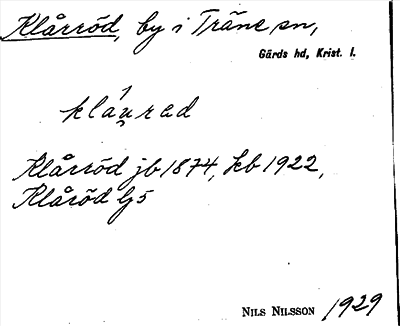 Klårröd, by i Träne sn,
Gärds hd, Krist. l.
kláu̯rad
Klårröd jb 1874, kb 1922,
Klåröd Gj 5
NILS NILSSON 1929